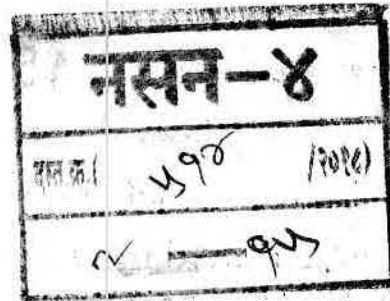 नसन-४
दस्त क्र.( ५१४ /२०१८)
२ — १५